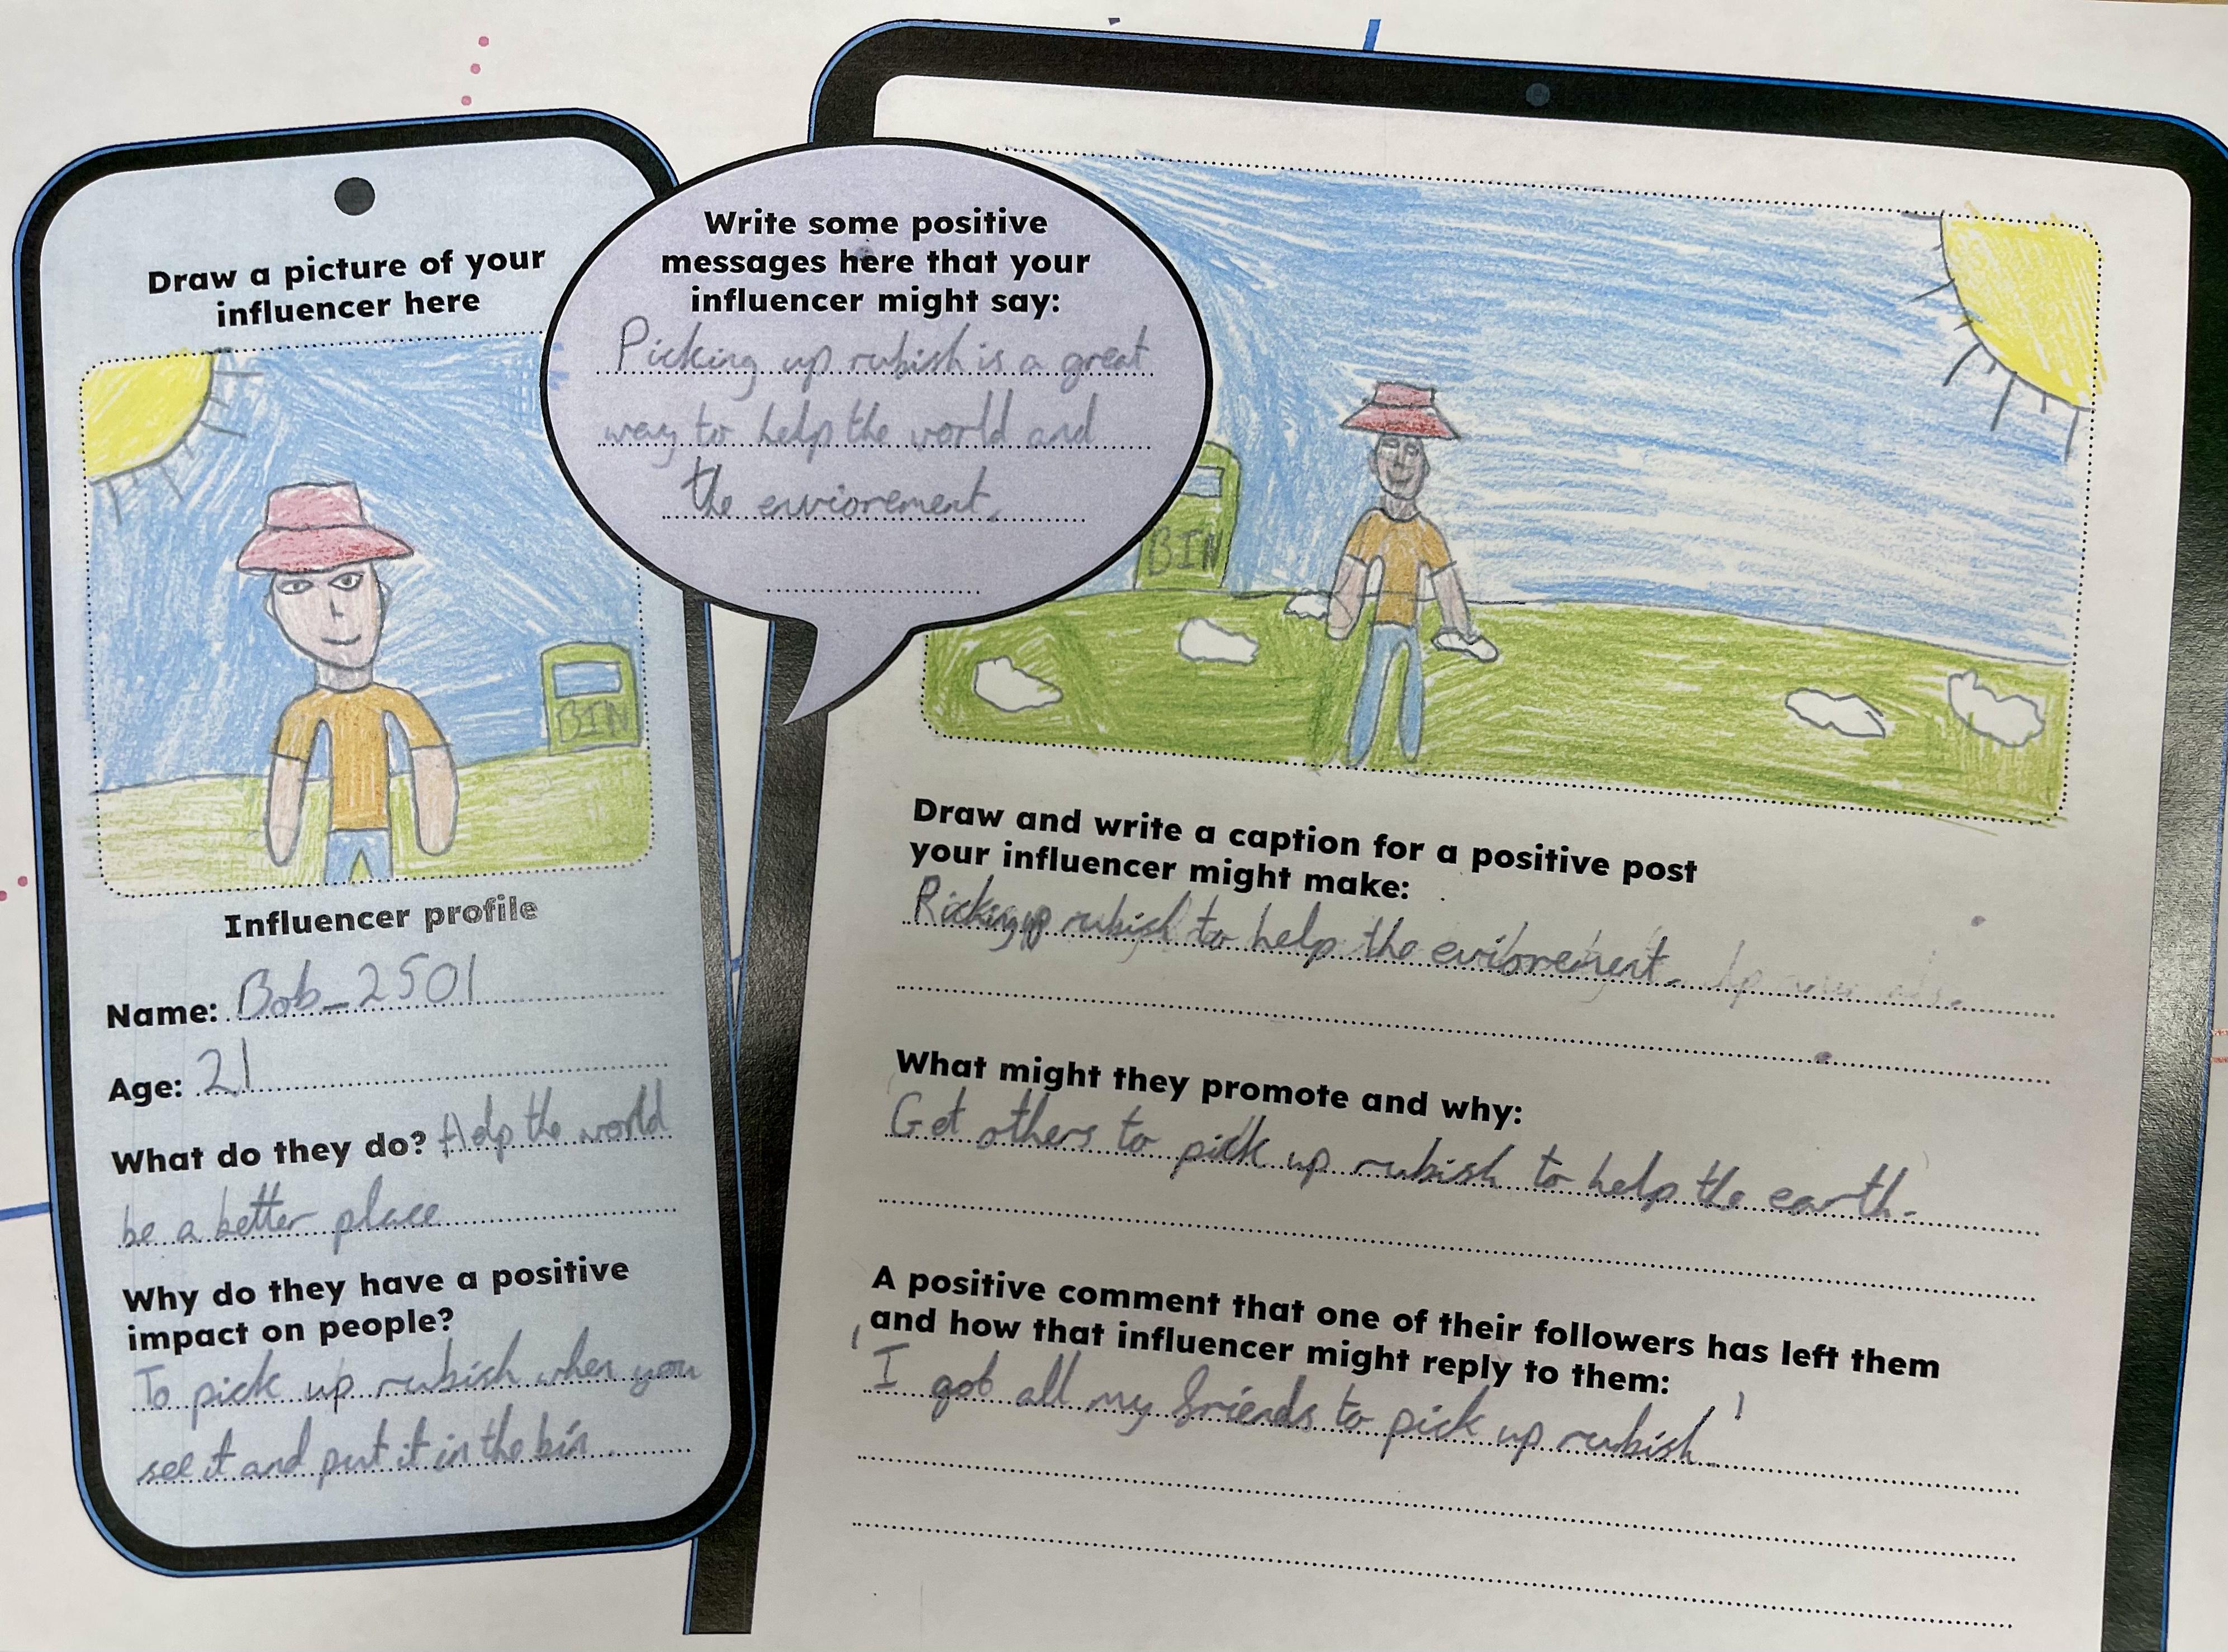 Draw a picture of your
influencer here
BIN
Influencer profile
Name: Bob_2501
Age: 21
What do they do? Help the world
be a better place
Why do they have a positive
impact on people?
To pick up rubish when you
see it and put it in the bin.
Write some positive
messages here that your
influencer might say:
Picking up rubish is a great
way to help the world and
the enviorement.
BIN
Draw and write a caption for a positive post
your influencer might make:
Picking up rubish to help the eviorement.
What might they promote and why:
Get others to pick up rubish to help the earth.
A positive comment that one of their followers has left them
and how that influencer might reply to them:
'I got all my friends to pick up rubish.'